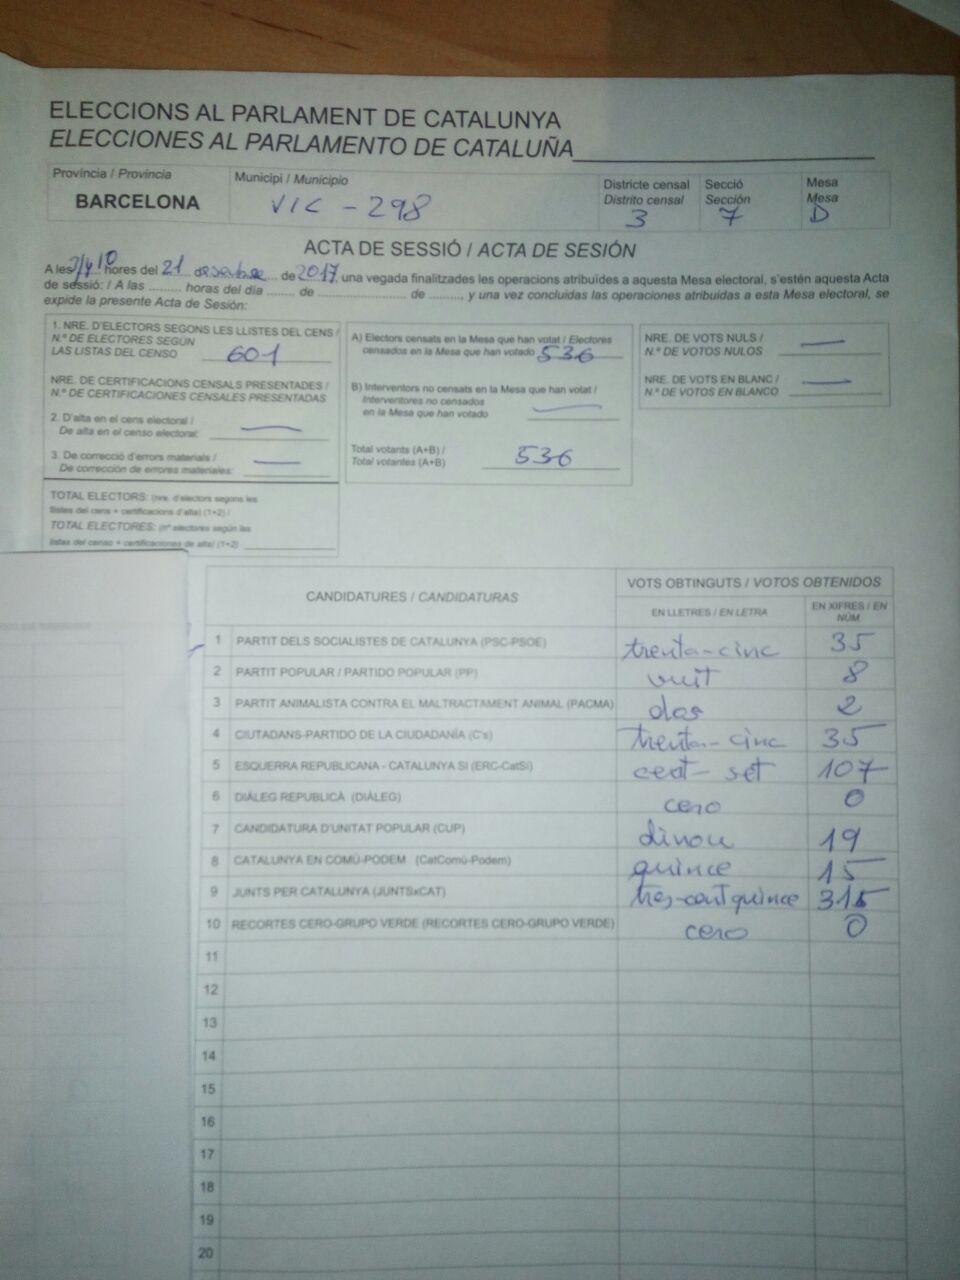 ELECCIONS AL PARLAMENT DE CATALUNYA
ELECCIONES AL PARLAMENTO DE CATALUÑA
Província / Provincia
BARCELONA
Municipi / Municipio
VIC - 298
Districte censal
Distrito censal
3
Secció
Sección
7
Mesa
Mesa
D
ACTA DE SESSIÓ / ACTA DE SESIÓN
A les hores del 21 de 2017, una vegada finalitzades les operacions atribuïdes a aquesta Mesa electoral, s'estén aquesta Acta
de sessió: / A las ......... horas del día ........ de ......................... de ........., y una vez concluidas las operaciones atribuidas a esta Mesa electoral, se
expide la presente Acta de Sesión:
1. NRE. D'ELECTORS SEGONS LES LLISTES DEL CENS /
N.º DE ELECTORES SEGÚN
LAS LISTAS DEL CENSO 601
NRE. DE CERTIFICACIONS CENSALS PRESENTADES /
N.º DE CERTIFICACIONES CENSALES PRESENTADAS
2. D'alta en el cens electoral /
De alta en el censo electoral: —
3. De correcció d'errors materials /
De corrección de errores materiales: —
TOTAL ELECTORS: (nre. d'electors segons les
llistes del cens + certificacions d'alta) (1+2) /
TOTAL ELECTORES: (nº electores según las
listas del censo + certificaciones de alta) (1+2)
A) Electors censats en la Mesa que han votat / Electores
censados en la Mesa que han votado 536
B) Interventors no censats en la Mesa que han votat /
Interventores no censados
en la Mesa que han votado —
Total votants (A+B) /
Total votantes (A+B) 536
NRE. DE VOTS NULS /
N.º DE VOTOS NULOS —
NRE. DE VOTS EN BLANC /
N.º DE VOTOS EN BLANCO —
CANDIDATURES / CANDIDATURAS
VOTS OBTINGUTS / VOTOS OBTENIDOS
EN LLETRES / EN LETRA
EN XIFRES / EN
NÚM.
1 PARTIT DELS SOCIALISTES DE CATALUNYA (PSC-PSOE) trenta-cinc 35
2 PARTIT POPULAR / PARTIDO POPULAR (PP) vuit 8
3 PARTIT ANIMALISTA CONTRA EL MALTRACTAMENT ANIMAL (PACMA) dos 2
4 CIUTADANS-PARTIDO DE LA CIUDADANÍA (C's) trenta-cinc 35
5 ESQUERRA REPUBLICANA - CATALUNYA SÍ (ERC-CatSí) cent-set 107
6 DIÀLEG REPUBLICÀ (DIÀLEG) cero 0
7 CANDIDATURA D'UNITAT POPULAR (CUP) dinou 19
8 CATALUNYA EN COMÚ-PODEM (CatComú-Podem) quince 15
9 JUNTS PER CATALUNYA (JUNTSxCAT) tres-cent quince 315
10 RECORTES CERO-GRUPO VERDE (RECORTES CERO-GRUPO VERDE) cero 0
11
12
13
14
15
16
17
18
19
20